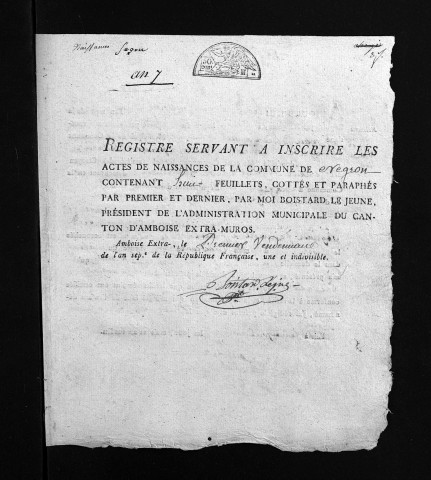 Naissances Negron
an 7
REGISTRE SERVANT A INSCRIRE LES
ACTES DE NAISSANCES DE LA COMMUNE DE Negron
CONTENANT huit FEUILLETS, COTTÉS ET PARAPHÉS
PAR PREMIER ET DERNIER, PAR MOI BOISTARD LE JEUNE,
PRÉSIDENT DE L'ADMINISTRATION MUNICIPALE DU CAN-
TON D'AMBOISE EXTRA-MUROS.
Amboise Extra-, le Premier Vendemiaire
de l'an sep.e de la République Française, une et indivisible.
Boistard Lejne